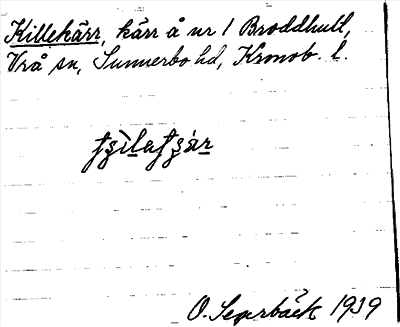 Killekärr, kärr å nr 1 Broddhult,
Vrå sn, Sunnerbo hd, Kronob. l.
O. Segerbäck 1939